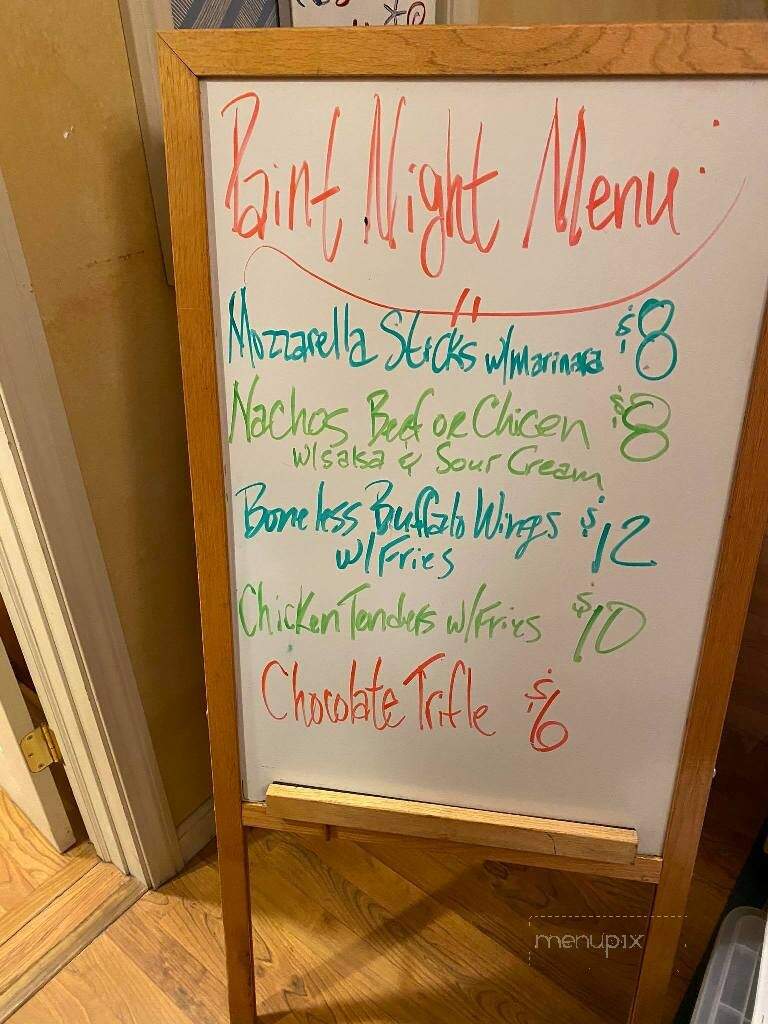 Paint Night Menu
Mozzarella Sticks w/Marinara $8
Nachos Beef or Chicen $8
w/salsa & Sour Cream
Boneless Buffalo Wings $12
w/Fries
Chicken Tenders w/Fries $10
Chocolate Trifle $6
menupix